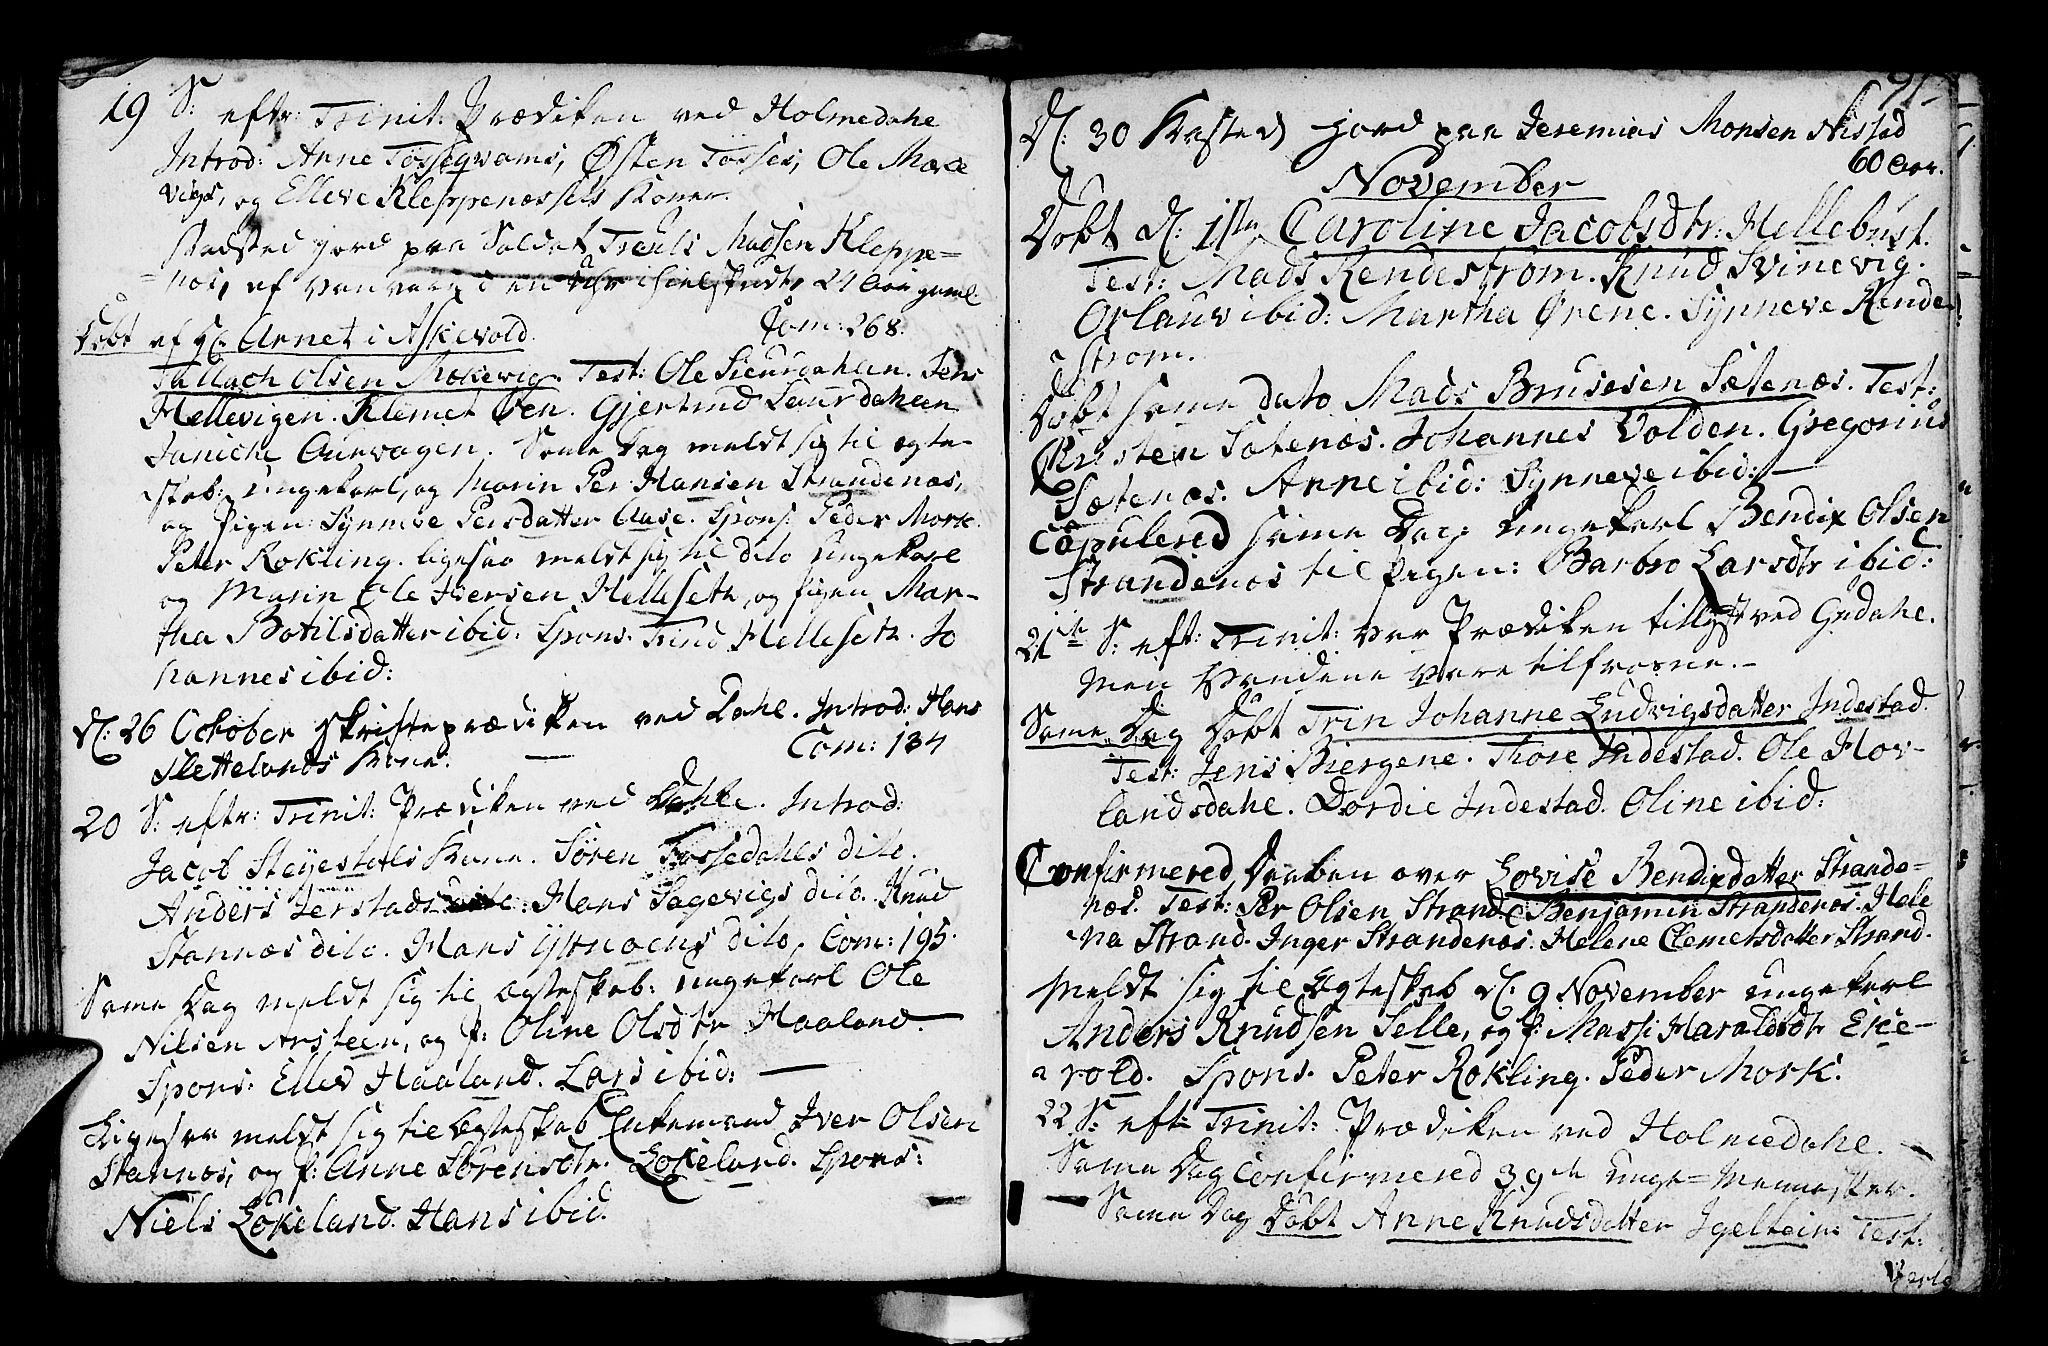 19 S: eftr: Trinit: Prædiken ved Holmedahe
Introd: Anne Tøssegvams, Østen Tøsses, Ole Mæke
vigs, og Elleve Kleppenæssets Koner.
Kasted jord paa Soldat Troels Madsen Kleppe-
næs, af 24 Aar gaml
Com: 268.
Døbt af H: Arnet i Askevold
Tallach Olsen Mækevig. Test: Ole Sieurdahlen. Jens
Hellevigen. Klemet Øen. Gjertrud Saurdahlen
Janiche Aurvagen. Same Dag meldt sig til ægte-
skab: ungekarl, og Marin Per Hansen Strandenæs,
og Pigen: Synneve Persdatter Aase. Spons: Peder Mork.
Peter Rokling. ligesaa meldt sig til dito ungekarl
og Marin Ole Iversen Helleseth, og pigen Mar-
tha Botilsdatter ibid. Spons. Trund Helleseth. Jo
hannes ibid:
D: 26 October Skrifteprædiken ved Dahe. Introd: Hans
Slettelands Kone. Com: 134
20 S: eftr: Trinit: Prædiken ved Dahle. Introd:
Jacob Steijestøls Kone. Søren Fossedahls dito.
Anders Jerstads dito. Hans Sagevigs dito. Knud
Stannæs dito. Hans Yttrøens dito, Com: 195.
Same Dag meldt sig til Ægteskab: ungekarl Ole
Nilsen Arsteen, og P: Oline Olsdtr Haaland.
Spons: Ellev Haaland. Lars ibid:
Ligesaa meldt sig til Ægteskab Enkemand Iver Olsen
Stannæs, og P: Anne Sørensdtr. Løkeland. Spons:
Niels Løkeland. Hans ibid.
91
D: 30 Kasted jord paa Jeremias Monsen Nistad
60 Aar.
November
Døbt d: 1ste Caroline Jacobsdtr: Hellebust.
Test: Mads Rendestrøm. Knud Svinevig.
Orlauv ibid: Martha Ørene. Synneve Rende
strøm.
Døbt same dato Mads Brusesen Sætenæs. Test:
Christen Sætenæs. Johannes Volden. Gregorius
Sætenæs. Anne ibid: Synneve ibid:
Copulered same Dag: ungekarl Bendix Olsen
Strandenæs til Pigen: Barbro Larsdtr ibid:
21de S: eft: Trinit: var Prædiken tillyst ved Gudahe.
Men Vandene vare tilfrosne.
Same Dag Døbt Trin Johanne Ludvigsdatter Indestad.
Test: Jens Biergene. Thore Indestad. Ole Hov-
landsdahe. Dordie Indestad. Oline ibid:
Confirmered Daaben over Lovise Bendixdatter Strande-
næs. Test: Per Olsen Strand. Benjamin Strandenæs. Hele
na Strand. Inger Strandenæs. Helene Clemetsdatter Strand.
Meldt sig til Ægteskab d: 9 November ungekarl
Anders Knudsen Selle, og P: Massi Haraldsdtr Eke-
vold. Spons. Peter Rokling. Peder Mork.
22 S: eft: Trinit: Prædiken ved Holmedahe.
Same Dag Confirmered 39te unge-Mennesker.
Same Dag Døbt Anne Knudsdatter Igeltein. Test: